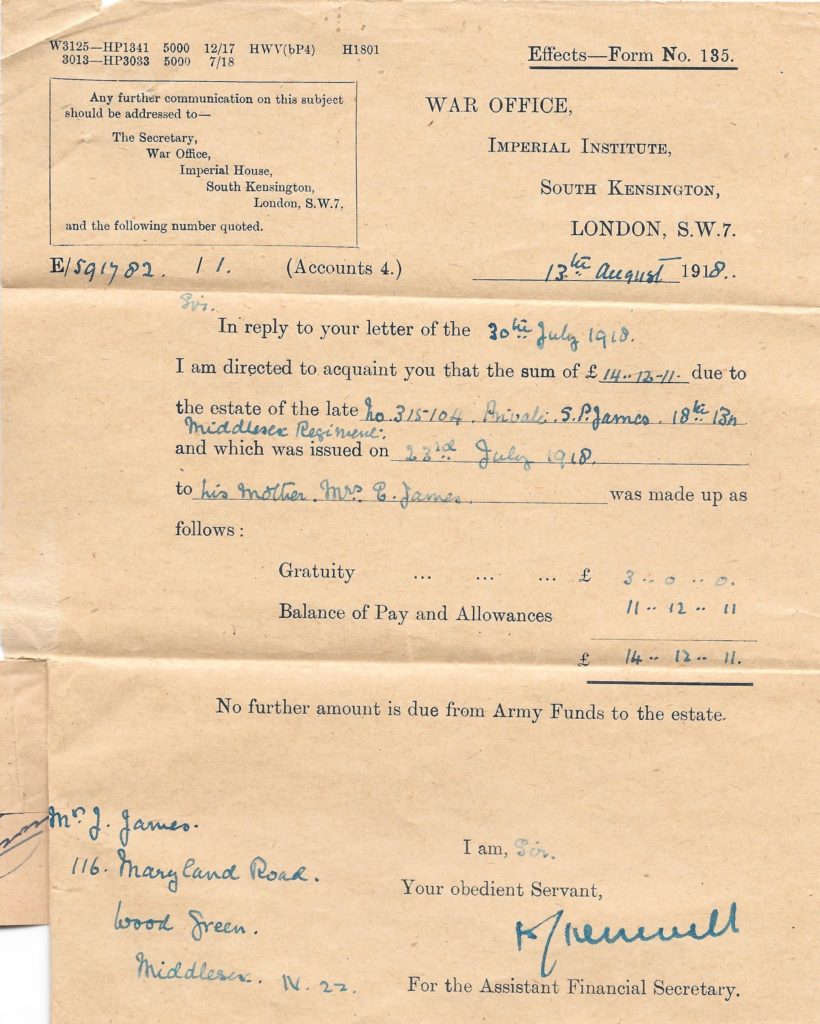 W3125—HP1341 5000 12/17 HWV(bP4) H1801
3013—HP3033 5000 7/18
Effects—Form No. 135.
Any further communication on this subject
should be addressed to—
The Secretary,
War Office,
Imperial House,
South Kensington,
London, S.W.7,
and the following number quoted.
WAR OFFICE,
Imperial Institute,
South Kensington,
LONDON, S.W.7.
E/591782. 11. (Accounts 4.)
13th August 1918.
Sir.
In reply to your letter of the 30th July 1918.
I am directed to acquaint you that the sum of £ 14-12-11. due to
the estate of the late No 315104. Private. S.P. James. 18th Bn
Middlesex Regiment.
and which was issued on 23rd July 1918.
to his Mother. Mrs. E. James. was made up as
follows:
Gratuity ... ... ... £ 3..0..0.
Balance of Pay and Allowances 11..12..11
£ 14..12..11.
No further amount is due from Army Funds to the estate.
Mr J. James.
116. Maryland Road.
Wood Green.
Middlesex. N. 22.
I am, Sir.
Your obedient Servant,
For the Assistant Financial Secretary.